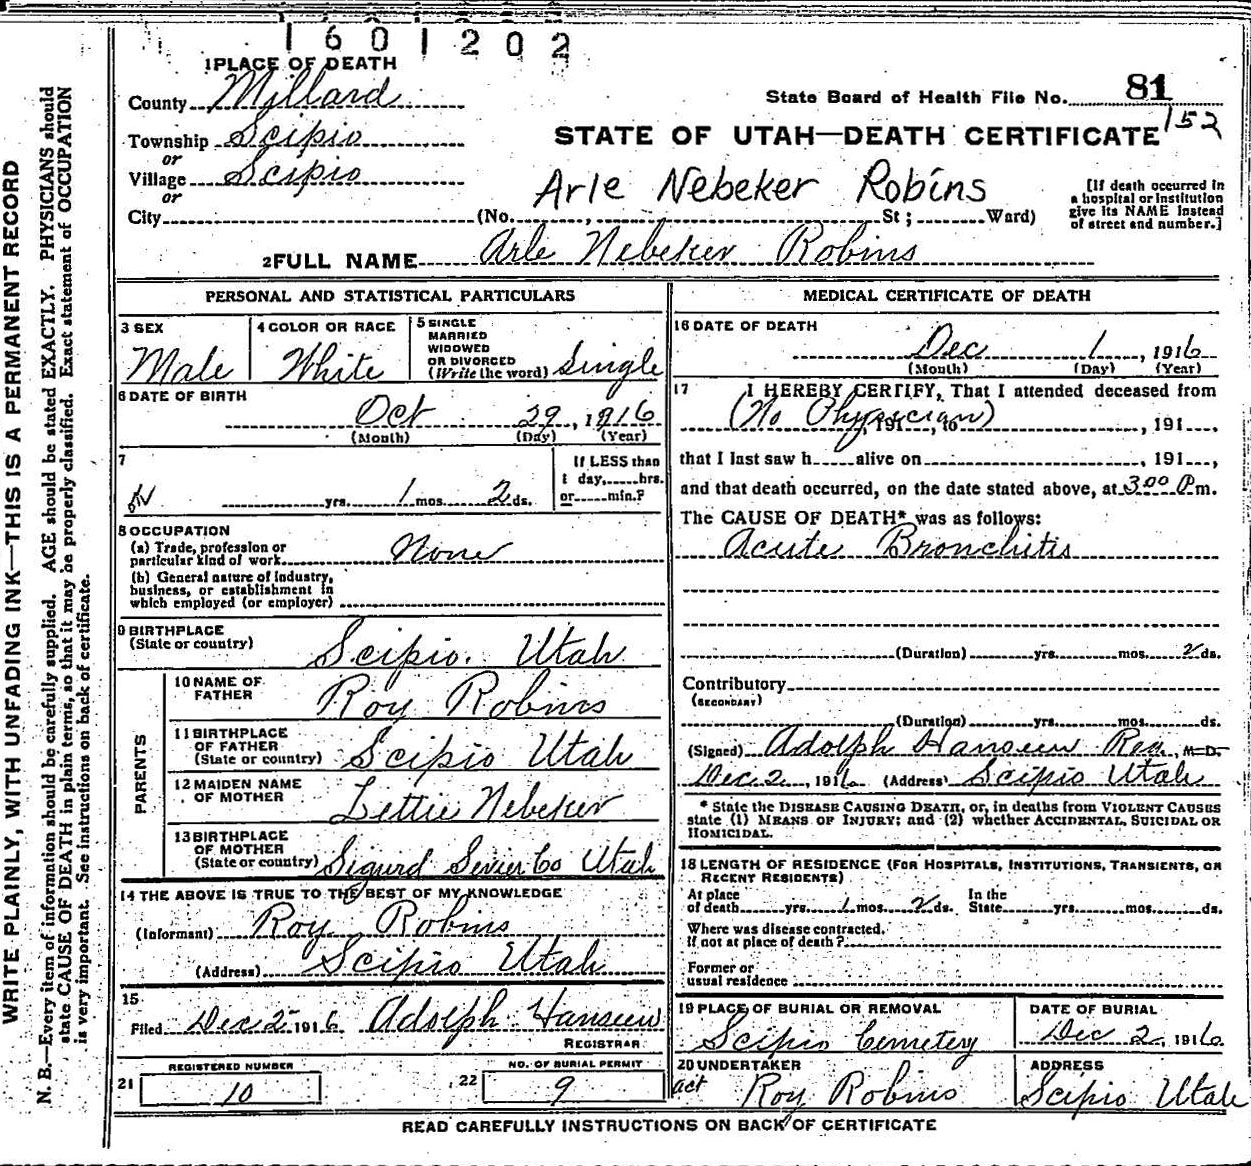 1601202
1 PLACE OF DEATH
County Millard
State Board of Health File No. 81
152
Township Scipio
or
STATE OF UTAH—DEATH CERTIFICATE
Village Scipio
or
Arle Nebeker Robins
[If death occurred in
a hospital or institution
give its NAME instead
of street and number.]
City (No. , St ; Ward)
2 FULL NAME Arle Nebeker Robins
PERSONAL AND STATISTICAL PARTICULARS
3 SEX
Male
4 COLOR OR RACE
White
5 SINGLE
MARRIED
WIDOWED
OR DIVORCED
(Write the word) Single
6 DATE OF BIRTH
Oct 29, 1916
(Month) (Day) (Year)
7
yrs. 1 mos. 2 ds.
If LESS than
1 day, hrs.
or min.?
8 OCCUPATION
(a) Trade, profession or
particular kind of work None
(b) General nature of industry,
business, or establishment in
which employed (or employer)
9 BIRTHPLACE
(State or country) Scipio. Utah
PARENTS
10 NAME OF
FATHER Roy Robins
11 BIRTHPLACE
OF FATHER
(State or country) Scipio Utah
12 MAIDEN NAME
OF MOTHER Lettie Nebeker
13 BIRTHPLACE
OF MOTHER
(State or country) Sigurd Sevier Co Utah
14 THE ABOVE IS TRUE TO THE BEST OF MY KNOWLEDGE
(Informant) Roy Robins
(Address) Scipio Utah
15
Filed Dec 2 1916 Adolph Hanseen
REGISTRAR
21 REGISTERED NUMBER
10
22 NO. OF BURIAL PERMIT
9
MEDICAL CERTIFICATE OF DEATH
16 DATE OF DEATH
Dec 1, 1916
(Month) (Day) (Year)
17 I HEREBY CERTIFY, That I attended deceased from
(No Physician) , 191 , to , 191 ,
that I last saw h alive on , 191 ,
and that death occurred, on the date stated above, at 3.00 P m.
The CAUSE OF DEATH* was as follows:
Acute Bronchitis
(Duration) yrs. mos. 2 ds.
Contributory
(SECONDARY)
(Duration) yrs. mos. ds.
(Signed) Adolph Hanseen Reg , M. D.
Dec 2, 1916 (Address) Scipio Utah
* State the DISEASE CAUSING DEATH, or, in deaths from VIOLENT CAUSES
state (1) MEANS OF INJURY; and (2) whether ACCIDENTAL, SUICIDAL OR
HOMICIDAL.
18 LENGTH OF RESIDENCE (FOR HOSPITALS, INSTITUTIONS, TRANSIENTS, OR
RECENT RESIDENTS)
At place
of death yrs. 1 mos. 2 ds.
In the
State yrs. mos. ds.
Where was disease contracted,
if not at place of death?
Former or
usual residence
19 PLACE OF BURIAL OR REMOVAL
Scipio Cemetery
DATE OF BURIAL
Dec 2, 1916
20 UNDERTAKER
act Roy Robins
ADDRESS
Scipio Utah
READ CAREFULLY INSTRUCTIONS ON BACK OF CERTIFICATE
WRITE PLAINLY, WITH UNFADING INK—THIS IS A PERMANENT RECORD
N. B.—Every item of information should be carefully supplied. AGE should be stated EXACTLY. PHYSICIANS should
state CAUSE OF DEATH in plain terms, so that it may be properly classified. Exact statement of OCCUPATION
is very important. See instructions on back of certificate.